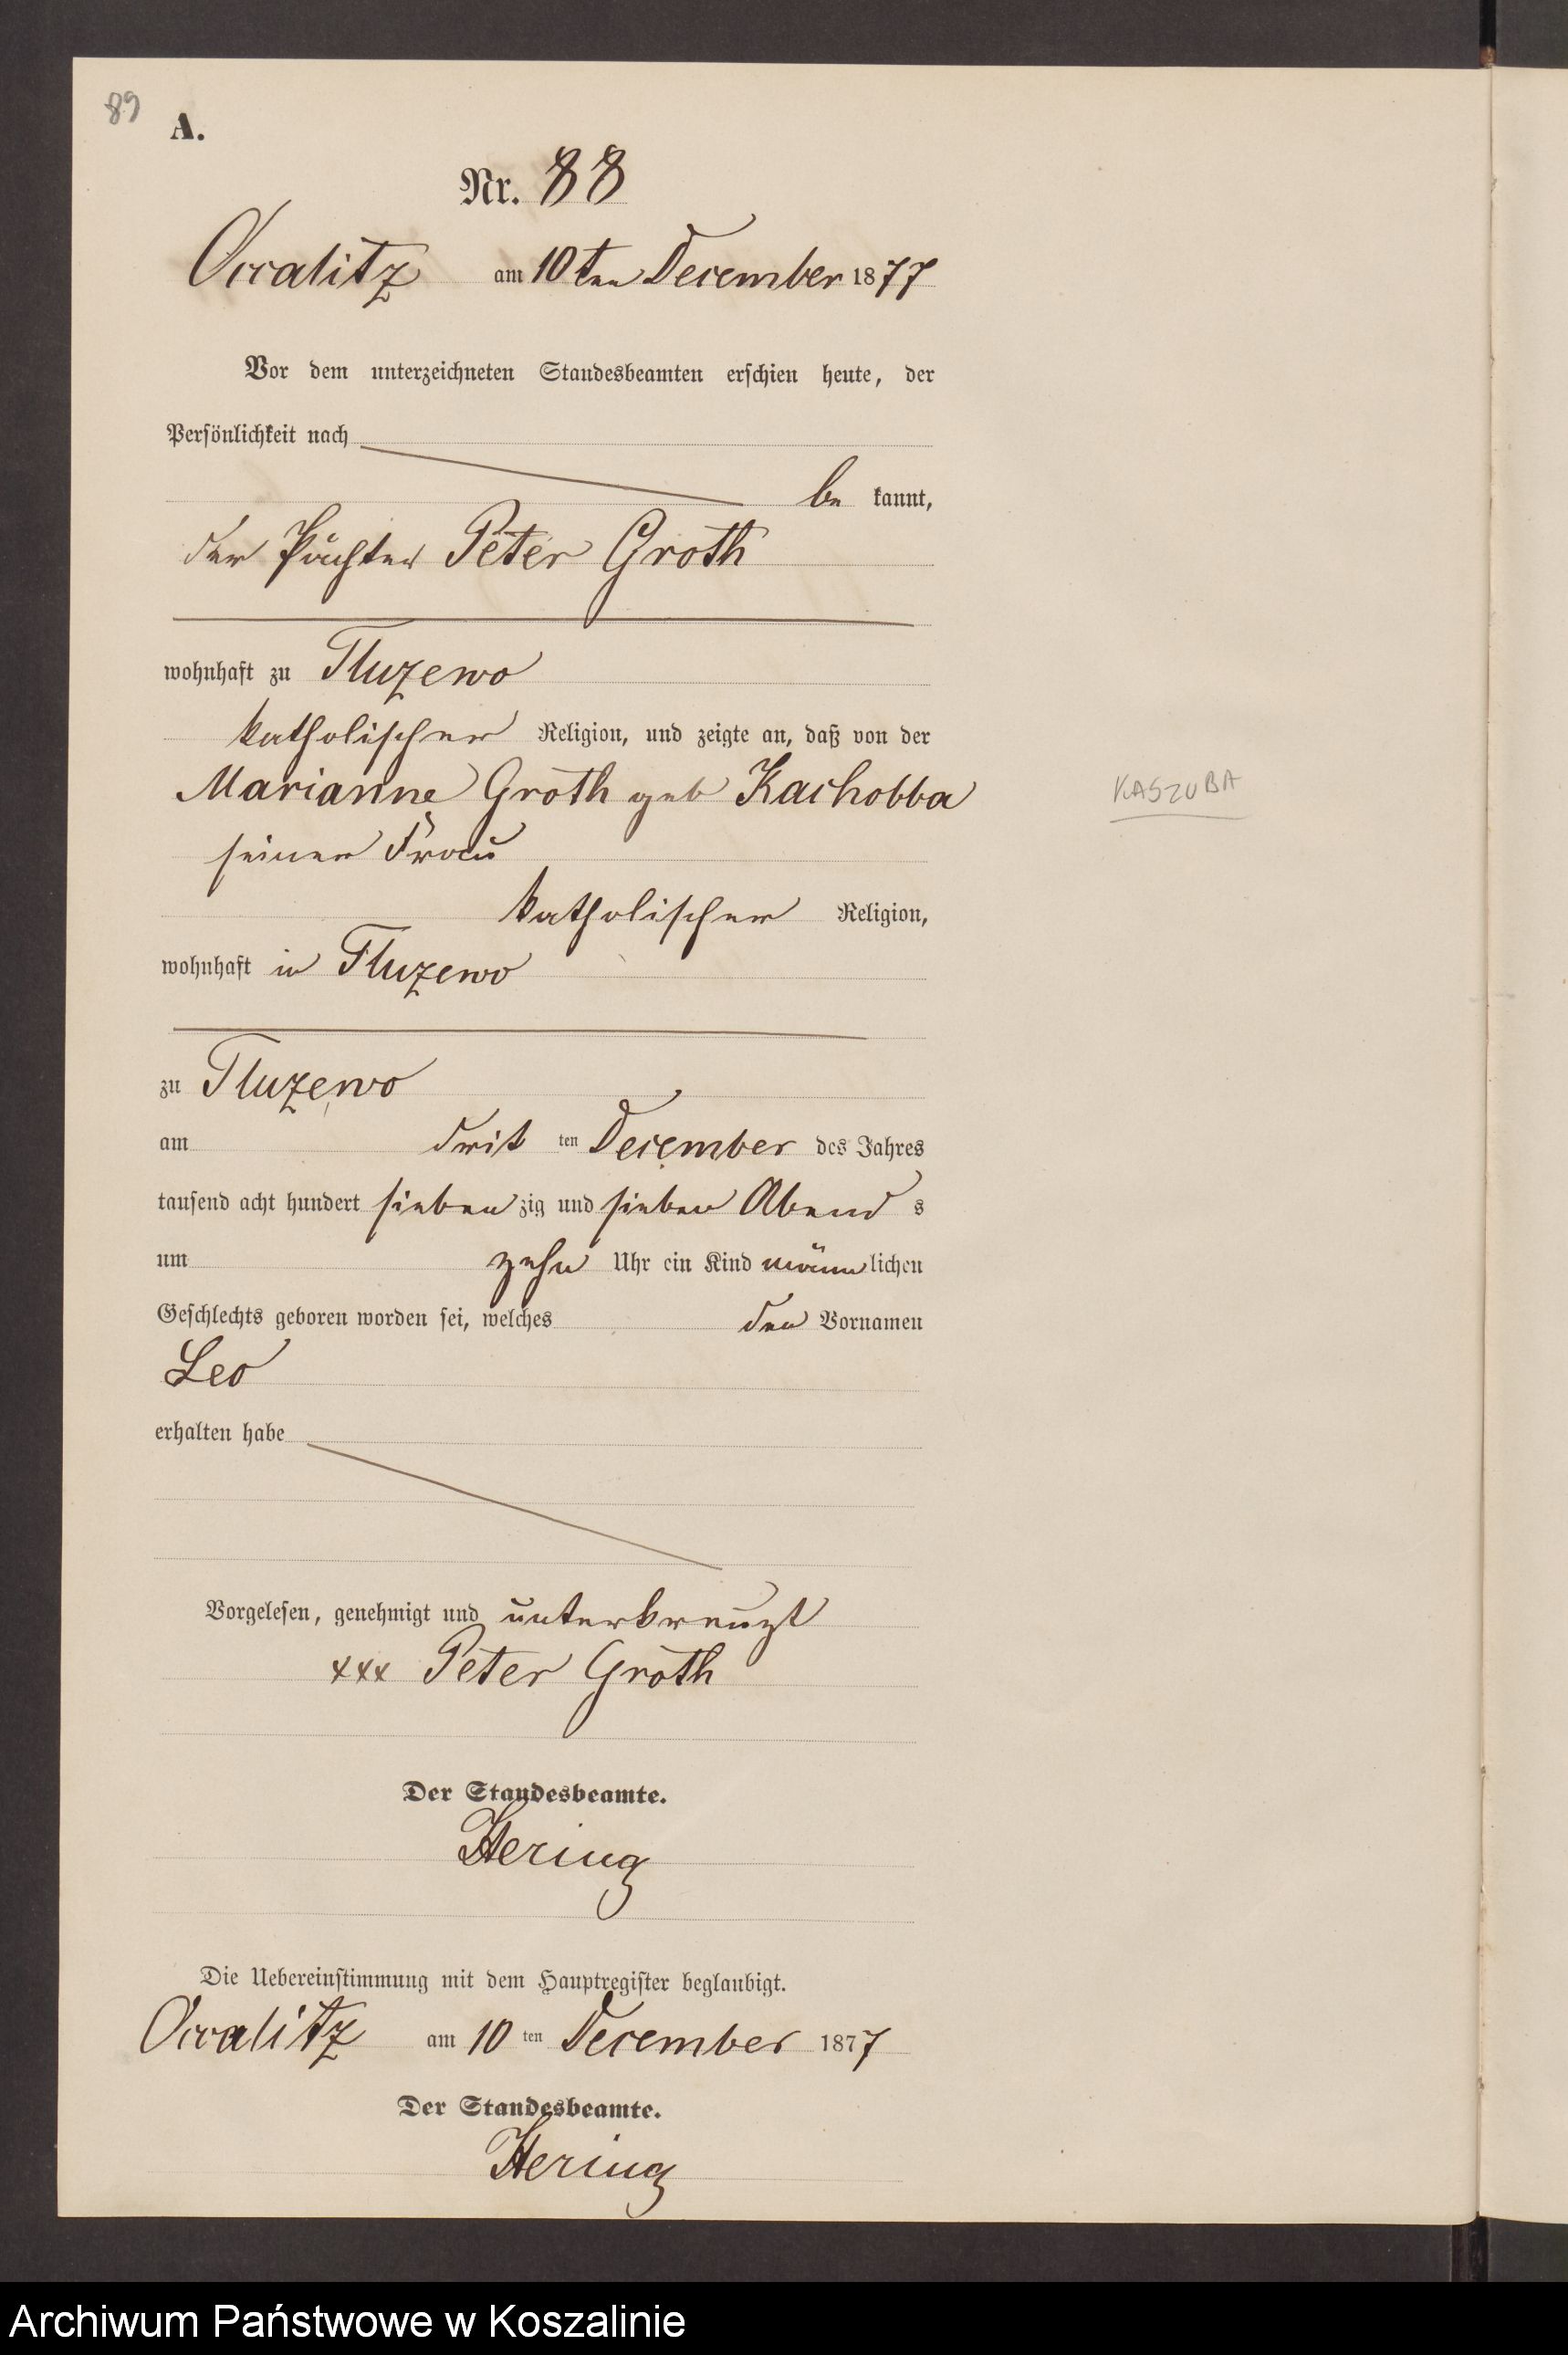 89
A.
Nr. 88
Occalitz am 10ten December 1877
Vor dem unterzeichneten Standesbeamten erschien heute, der
Persönlichkeit nach
be kannt,
der Pächter Peter Groth
wohnhaft zu Tluzewo
katholischer Religion, und zeigte an, daß von der
Marianne Groth geb Kachobba
KASZUBA
seiner Frau
katholischer Religion,
wohnhaft in Tluzewo
zu Tluzewo
am drit ten December des Jahres
tausend acht hundert sieben zig und sieben Abend s
um zehn Uhr ein Kind männ lichen
Geschlechts geboren worden sei, welches den Vornamen
Leo
erhalten habe
Vorgelesen, genehmigt und unterkreuzt
xxx Peter Groth
Der Standesbeamte.
Hering
Die Uebereinstimmung mit dem Hauptregister beglaubigt.
Occalitz am 10 ten December 1877
Der Standesbeamte.
Hering
Archiwum Państwowe w Koszalinie